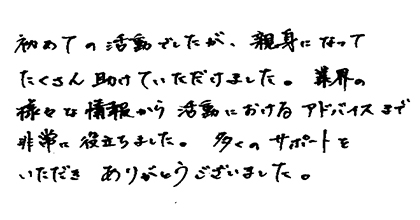 初めての活動でしたが、親身になって
たくさん助けていただけました。業界の
様々な情報から活動におけるアドバイスまで
非常に役立ちました。多くのサポートを
いただき ありがとうございました。